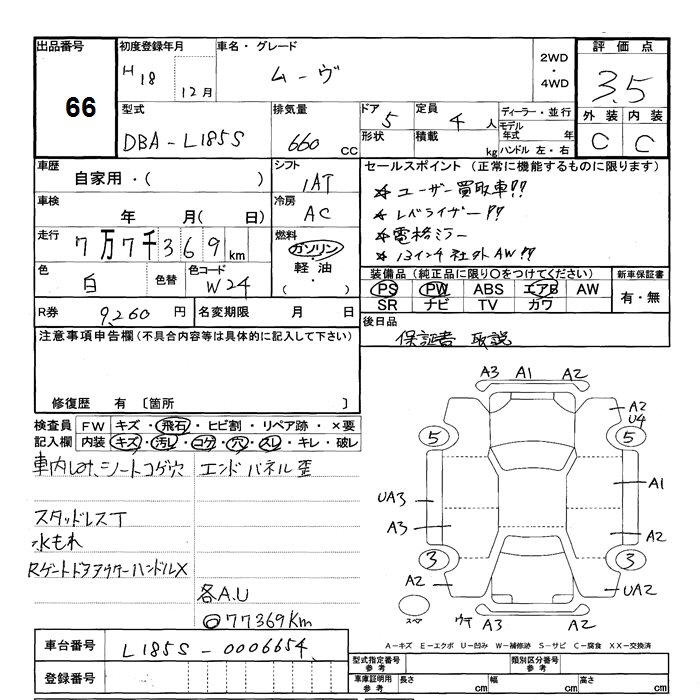 出品番号
66
初度登録年月
H18 12月
車名・グレード
ムーヴ
2WD・4WD
評価点
3.5
外装 内装
C C
型式
DBA-L185S
排気量
660 CC
ドア 5
形状
定員 4 人
積載 kg
ディーラー・並行
モデル年式 年
ハンドル 左・右
車歴
自家用・( )
シフト
IAT
セールスポイント (正常に機能するものに限ります)
☆ユーザー買取車!!
☆レベライザー!!
☆電格ミラー
☆13インチ社外AW!!
車検
年 月( 日)
冷房
AC
走行
7万7千369km
燃料
ガソリン・軽油・( )
色
白
色替
色コード
W24
装備品 (純正品に限り○をつけてください)
PS PW ABS エアB AW
SR ナビ TV カワ
新車保証書
有・無
R券 9,260 円
名変期限 月 日
後日品
保証書 取説
注意事項申告欄 (不具合内容等は具体的に記入して下さい)
修復歴 有 〔箇所 〕
検査員記入欄
FW キズ・飛石・ヒビ割・リペア跡・×要
内装 キズ・汚レ・コゲ・穴・スレ・キレ・破レ
車内しみ、シートコゲ穴
エンドパネル歪
スタッドレスT
水もれ
RゲートドアアウターハンドルX
各A.U
◎77369Km
A3 A1 A2
A2
U4
5 5
UA3
A1
A3
A2
3 3
A2
UA2
スペア
ウケ A3 A2
A-キズ E-エクボ U-凹み W-補修跡 S-サビ C-腐食 XX-交換済
車台番号
L185S-0006654
登録番号
型式指定番号 参考
類別区分番号 参考
車庫証明用 参考
長さ cm
幅 cm
高さ cm